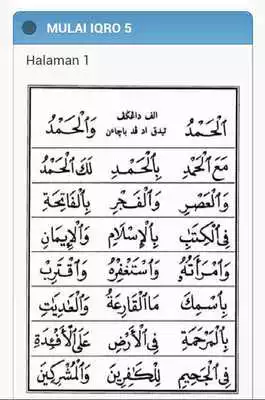 MULAI IQRO 5
Halaman 1
اَلْحَمْدُ الف دالڠكڤ وَٱلْحَمْدُ
تيدق اد ڤد باچاءن
مَعَ ٱلْحَمْدِ بِٱلْحَمْدِ لَكَ ٱلْحَمْدُ
وَٱلْعَصْرِ وَٱلْفَجْرِ بِٱلْفَاتِحَةِ
فِى ٱلْكِتَٰبِ بِٱلْإِسْلَامِ وَٱلْإِيمَانِ
وَٱمْرَأَتُهُ وَٱسْتَغْفِرْهُ وَٱقْتَرِبْ
بِٱسْمِكَ مَا ٱلْقَارِعَةُ وَٱلْعَٰدِيَٰتِ
بِٱلْمَرْحَمَةِ فِى ٱلْأَرْضِ عَلَى ٱلْأَفْـِٔدَةِ
فِى ٱلْجَحِيمِ لِلْكَٰفِرِينَ وَٱلْمُشْرِكِينَ